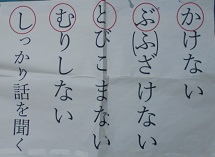 かけない
ぶ(ふ)ざけない
とびこまない
むりしない
しっかり話を聞く